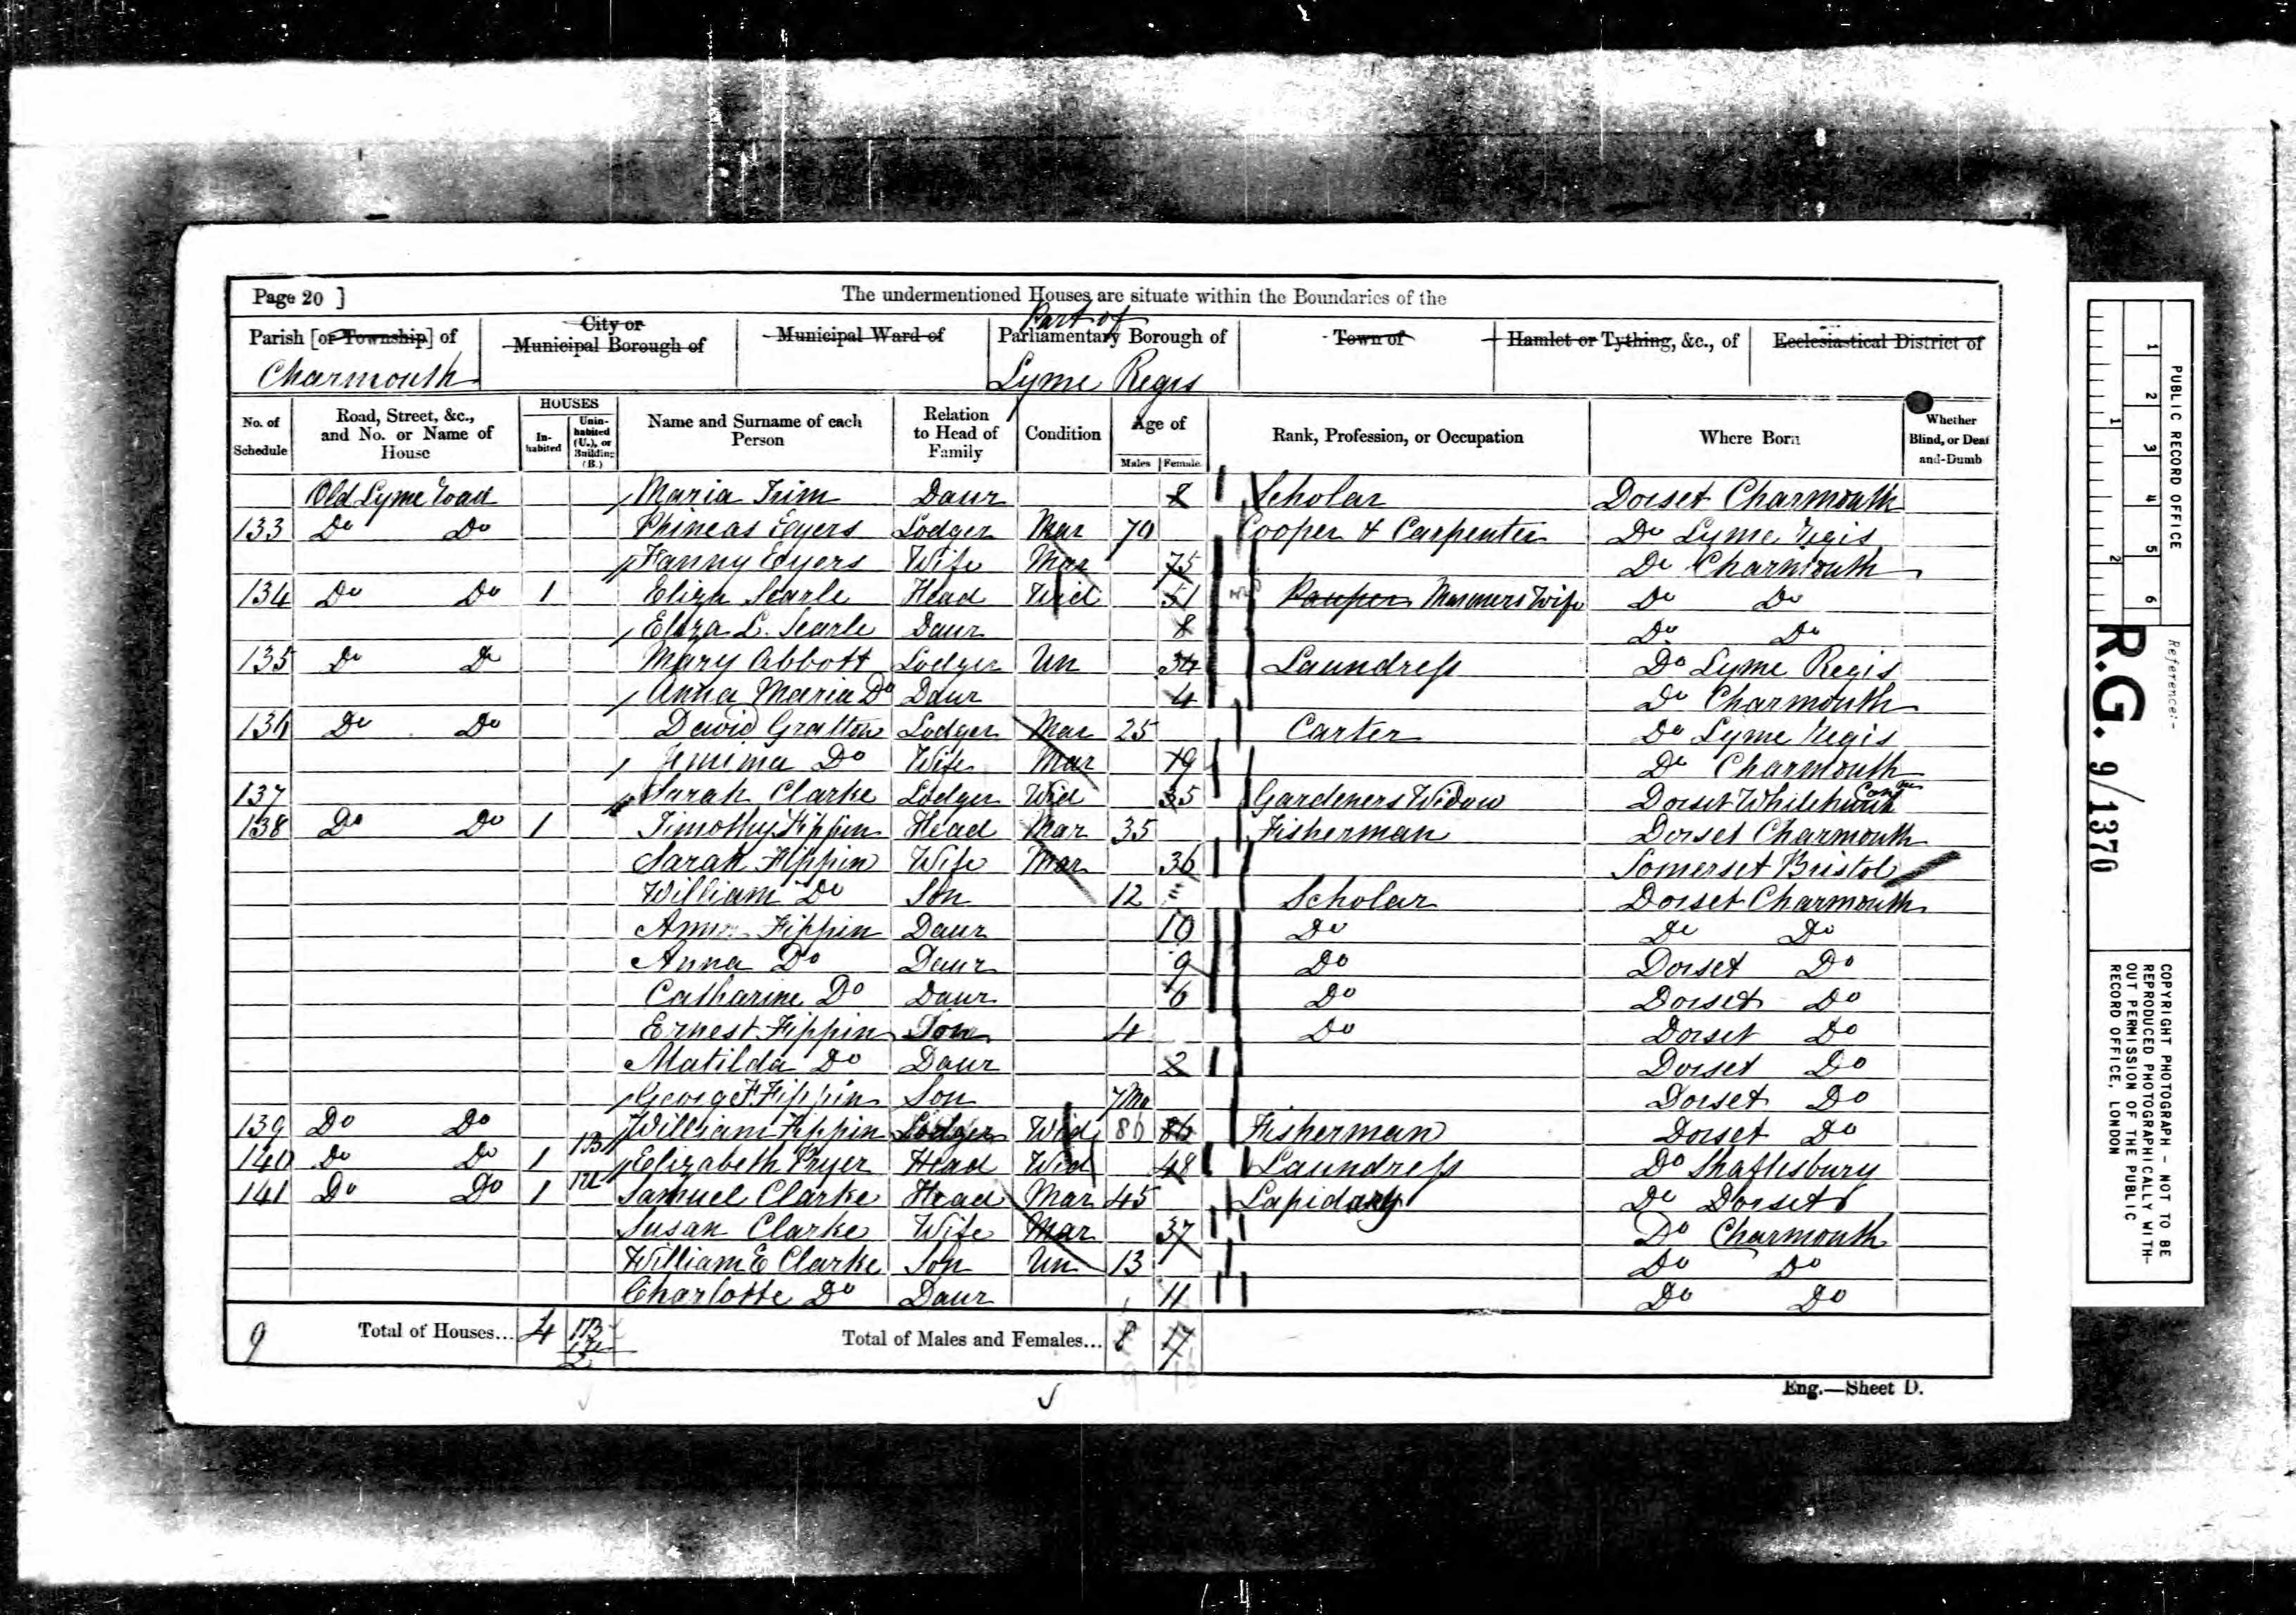 Page 20 ]
The undermentioned Houses are situate within the Boundaries of the
Parish [or Township] of Charmouth
City or Municipal Borough of
Municipal Ward of
Part of
Parliamentary Borough of Lyme Regis
Town of
Hamlet or Tything, &c., of
Ecclesiastical District of
No. of Schedule
Road, Street, &c., and No. or Name of House
HOUSES
In-habited
Unin-habited (U.), or Building (B.)
Name and Surname of each Person
Relation to Head of Family
Condition
Age of
Males Female
Rank, Profession, or Occupation
Where Born
Whether Blind, or Deaf and-Dumb
Old Lyme Road Maria Trim Daur 8 Scholar Dorset Charmouth
133 Do Do Phineas Edyers Lodger Mar 70 Cooper & Carpenter Do Lyme Regis
Fanny Edyers Wife Mar 75 Do Charmouth
134 Do Do 1 Eliza Searle Head Wid 51 Pauper Mariners Wife Do Do
Eliza L. Searle Daur 8 Do Do
135 Do Do Mary Abbott Lodger Un 34 Laundress Do Lyme Regis
Anna Maria Do Daur 4 Do Charmouth
136 Do Do David Gratton Lodger Mar 25 Carter Do Lyme Regis
Jemima Do Wife Mar 19 Do Charmouth
137 Sarah Clarke Lodger Wid 35 Gardeners Widow Dorset
138 Do Do 1 Timothy Fippin Head Mar 35 Fisherman Dorset Charmouth
Sarah Fippin Wife Mar 36 Somerset Bristol
William Do Son 12 Scholar Dorset Charmouth
Fippin Daur 10 Do Do Do
Anna Do Daur 9 Do Dorset Do
Catharine Do Daur 6 Do Dorset Do
Ernest Fippin Son 4 Do Dorset Do
Matilda Do Daur 2 Dorset Do
George F Fippin Son 7 Mo Dorset Do
139 Do Do William Fippin Lodger Wid 86 86 Fisherman Dorset Do
140 Do Do 1 1B Elizabeth Pryer Head Wid 48 Laundress Do Shaftesbury
141 Do Do 1 1U Samuel Clarke Head Mar 45 Lapidary Do Dorset
Susan Clarke Wife Mar 37 Do Charmouth
William E Clarke Son Un 13 Do Do
Charlotte Do Daur 11 Do Do
9 Total of Houses... 4 Total of Males and Females... 8 17
Eng.—Sheet D.
PUBLIC RECORD OFFICE
1 2 3 4 5 6
1 2
Reference:-
R.G. 9/1370
COPYRIGHT PHOTOGRAPH - NOT TO BE REPRODUCED PHOTOGRAPHICALLY WITH-OUT PERMISSION OF THE PUBLIC RECORD OFFICE, LONDON